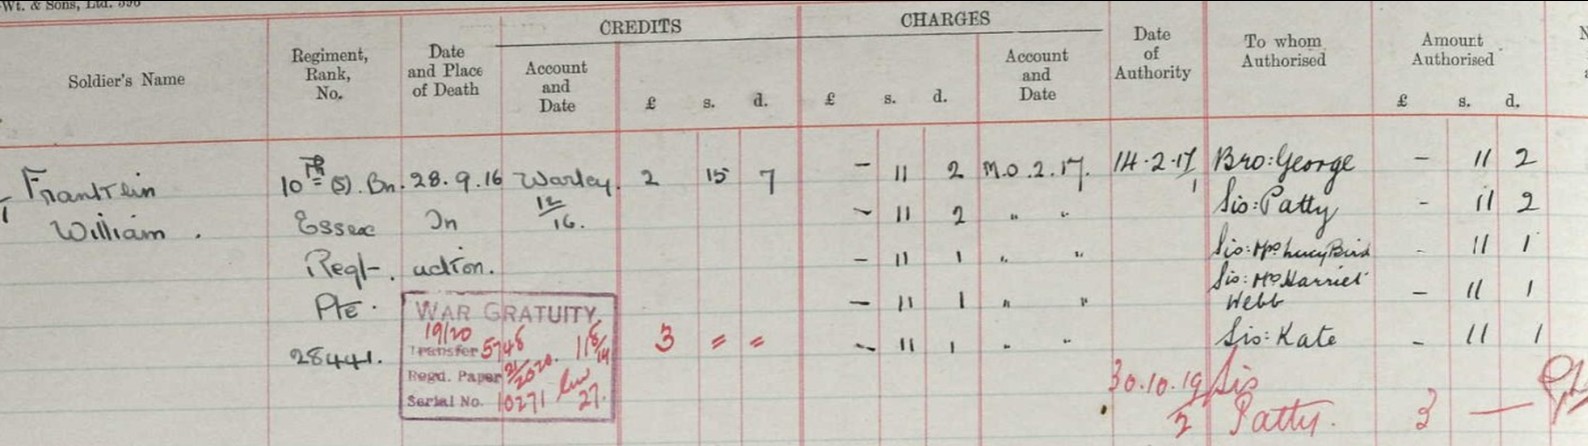 Wt. & Sons, Ltd. 396
CREDITS CHARGES
Soldier's Name Regiment, Rank, No. Date and Place of Death Account and Date £ s. d. £ s. d. Account and Date Date of Authority To whom Authorised Amount Authorised £ s. d.
Franklin 10th (S). Bn. 28.9.16 Warley. 2 15 7 - 11 2 M.O. 2.17. 14.2.17 Bro: George - 11 2
William. Essex In 12/16. - 11 2 " " Sis: Patty - 11 2
Regt. action. - 11 1 " " Sis: Mrs Lucy Bird - 11 1
Pte. - 11 1 " " Sis: Mrs Harriet Webb - 11 1
28441. 3 = = - 11 1 " " Sis: Kate - 11 1
WAR GRATUITY.
19/20
Transfer 5748
Regd. Paper
Serial No. 10271 27.
30.10.19 Sis
2 Patty. 3 —